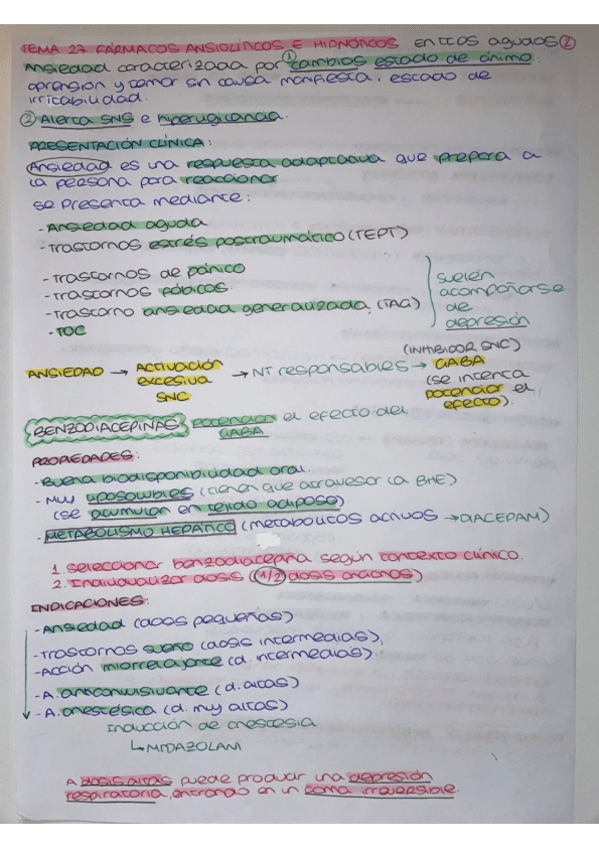 TEMA 27. FÁRMACOS ANSIOLÍTICOS E HIPNÓTICOS en ttos agudos ②
Ansiedad caracterizada por ① cambios estado de ánimo:
aprensión y temor sin causa manifiesta, estado de
irritabilidad.
② Alerta SNS e hipervigilancia.
PRESENTACIÓN CLÍNICA:
Ansiedad es una respuesta adaptativa que prepara a
la persona para reaccionar
se presenta mediante:
- Ansiedad aguda
- Trastornos estrés postraumático (TEPT)
- Trastornos de pánico
- Trastornos fóbicos.
- Trastorno ansiedad generalizada (TAG)
- TOC
suelen
acompañarse
de
depresión
(INHIBIDOR SNC)
ANSIEDAD → ACTIVACIÓN excesiva SNC → NT responsables → GABA
(se intenta
potenciar el
efecto).
BENZODIACEPINAS potencian el efecto del
GABA
PROPIEDADES:
- Buena biodisponibilidad oral.
- Muy liposolubles (tienen que atravesar la BHE)
(se acumulan en tejido adiposo)
- METABOLISMO HEPÁTICO (metabolitos activos → DIACEPAM)
1. Seleccionar benzodiacepina según contexto clínico.
2. Individualizar dosis (1/2 dosis ancianos)
INDICACIONES:
- Ansiedad (dosis pequeñas)
- Trastornos sueño (dosis intermedias),
- Acción miorrelajante (d. intermedias).
- A. anticonvulsivante (d. altas)
- A. anestésica (d. muy altas)
Inducción de anestesia
↳ MIDAZOLAM
A dosis altas puede producir una depresión
respiratoria, entrando en un coma irreversible.